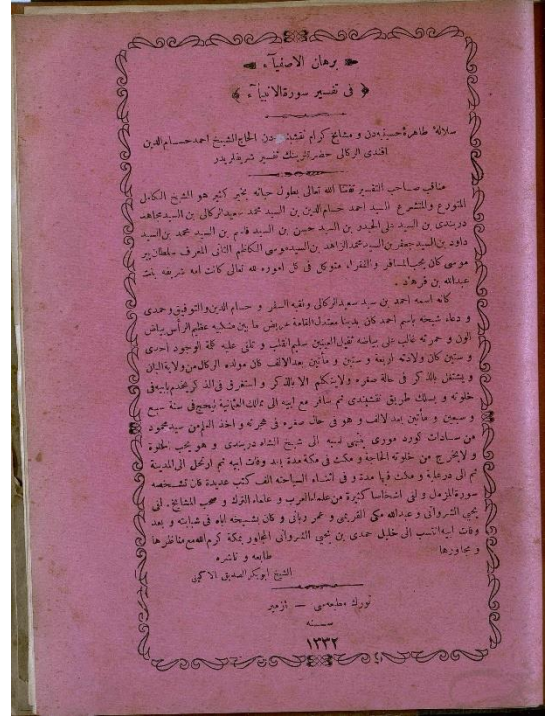 برهان الاصفيآء
﴿ فى تفسير سورة الانبيآء ﴾
سلالهٔ طاهرهٔ حسينيه‌دن و مشايخ كرام نقشبنديه‌دن الحاج الشيخ احمد حسام الدين
افندى الركالى حضرتلرينك تفسير شريفلريدر
مناقب صاحب التفسير نفعنا الله تعالى بطول حياته بخير كثير هو الشيخ الكامل
المتورع والمتشرع السيد احمد حسام الدين بن السيد محمد سعيد الركالى بن السيد مجاهد
دربندى بن السيد على الحيدر بن السيد حسن بن السيد قاسم بن السيد محمد بن السيد
داود بن السيد جعفر بن السيد محمد الزاهد بن السيد موسى الكاظم الثانى المعرف سلطان پير
موسى كان يحب المسافر والفقراء متوكل فى كل اموره لله تعالى كانت امه شريفه بنت
عبدالله بن فرهاد .
كانه اسمه احمد بن سيد سعيد الركالى ولقبه السفر و حسام الدين والتوفيق وحمدى
و دعاء شيخه باسم احمد كان بدينا معتدل القامة عريض ما بين منكبيه عظيم الرأس بياض
الون و حمرته غالب على بياضه ثقيل العينين سليم القلب و تلقى عليه كلمة الوجود احدى
و ستين كان ولادته اربعة و ستين و مأتين بعد الالف كان مولده الركال من ولاية البان
و يشتغل بالذكر فى حالة صغره ولايتكلم الا بالذكر و استغرق فى الذكر يخدم بابيه فى
خلوته و يسلك طريق نقشبندى ثم سافر مع ابيه الى ممالك العثمانية ليحج فى سنة سبع
و سبعين و مأتين بعد لالف و هو فى حال صغره فى هجرته و اخذ العلم من سيد محمود
من سادات كورد مورى ينتهى نسبه الى شيخ الشاه دربندى و هو يحب الخلوة
و لايخرج من خلوته الا لحاجة و مكث فى مكة مدة بعد وفات ابيه ثم ارتحل الى المدينة
ثم الى درعاية و مكث فيها مدة و فى اثناء السياحته الف كتب عديدة كان تشخصه
سورة المزمل و لقى اشخاصا كثيرة من علماء العرب و علماء الترك و صحب المشايخ . لقى
يحيى الشروانى و عبدالله مكى القريمى و عمر ربانى و كان بشيخه اباه فى شبابته و بعد
وفات ابيه انتسب الى خليل حمدى بن يحيى الشروانى المجاور بمكة كرم الله مع مناظرها
و مجاورها
طابعه و ناشره
الشيخ ابوبكر الصديق الاكينى
تورك مطبعه‌سى — ازمير
سنه
١٣٣٢